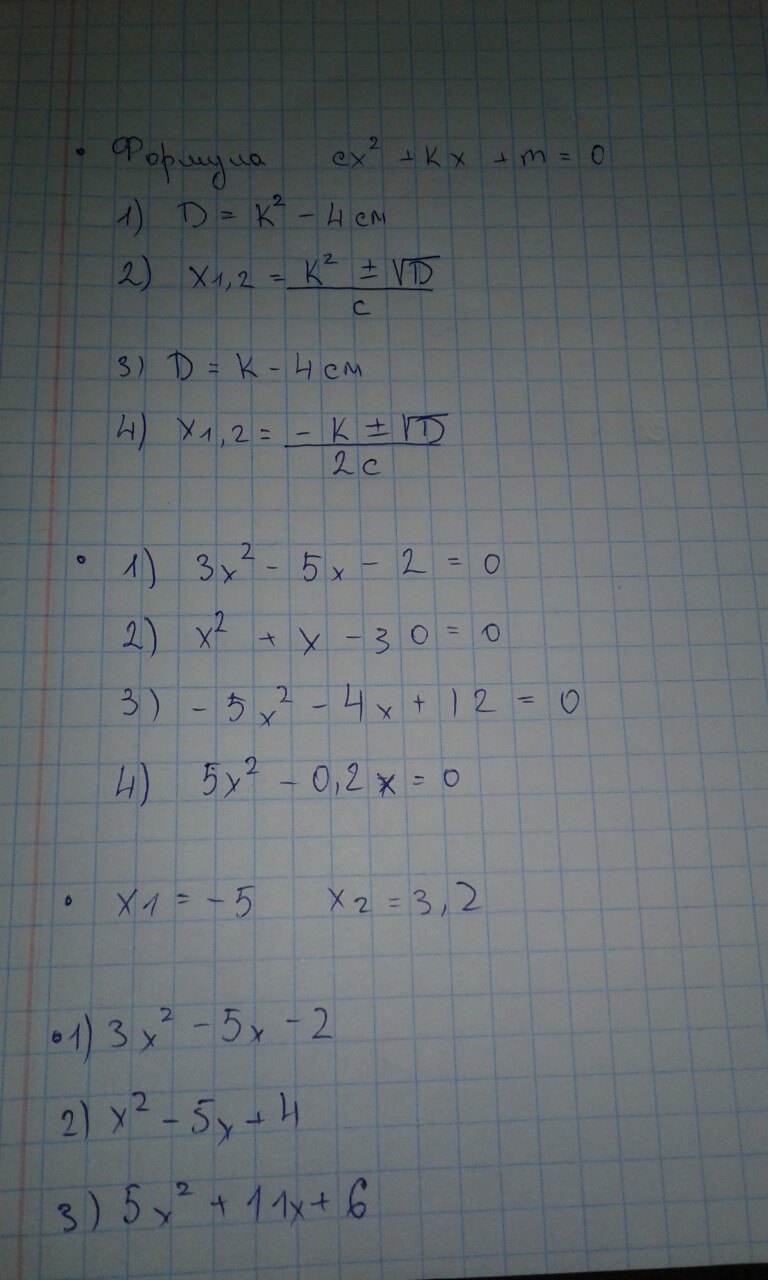 • Формула cx² + kx + m = 0
1) D = k² - 4cм
2) x1,2 = (k² ± √D) / c
3) D = k - 4cм
4) x1,2 = (-k ± √D) / 2c
• 1) 3x² - 5x - 2 = 0
2) x² + x - 30 = 0
3) -5x² - 4x + 12 = 0
4) 5x² - 0,2x = 0
• x1 = -5 x2 = 3,2
• 1) 3x² - 5x - 2
2) x² - 5x + 4
3) 5x² + 11x + 6